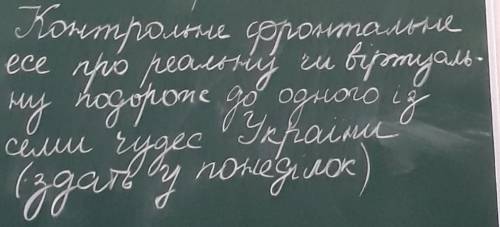 Контрольне фронтальне
есе про реальну чи віртуаль-
ну подорож до одного із
семи чудес України
(здать у понеділок)